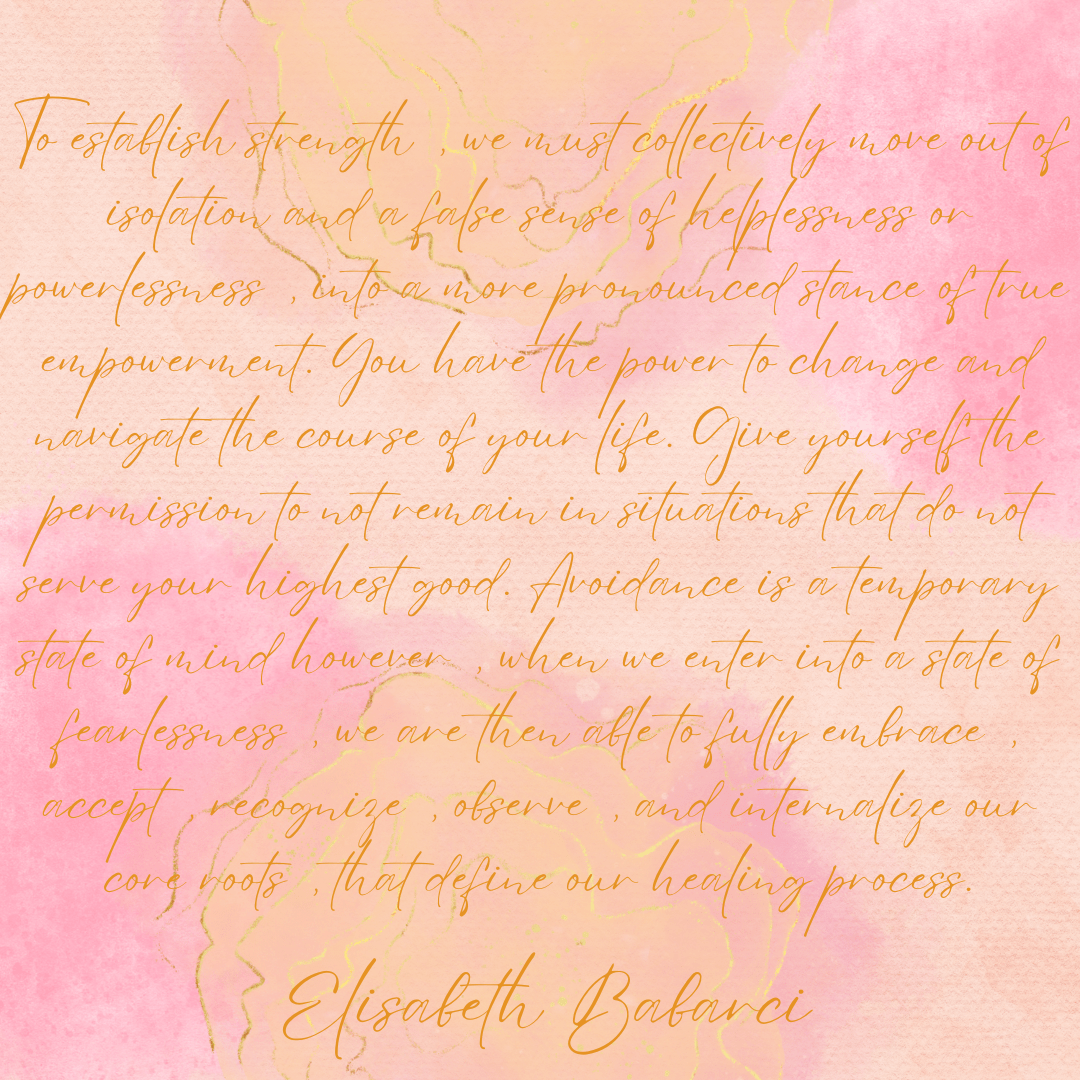 To establish strength , we must collectively move out of
isolation and a false sense of helplessness or
powerlessness , into a more pronounced stance of true
empowerment. You have the power to change and
navigate the course of your life. Give yourself the
permission to not remain in situations that do not
serve your highest good. Avoidance is a temporary
state of mind however , when we enter into a state of
fearlessness , we are then able to fully embrace ,
accept , recognize , observe , and internalize our
core roots , that define our healing process.
Elisabeth Babarci